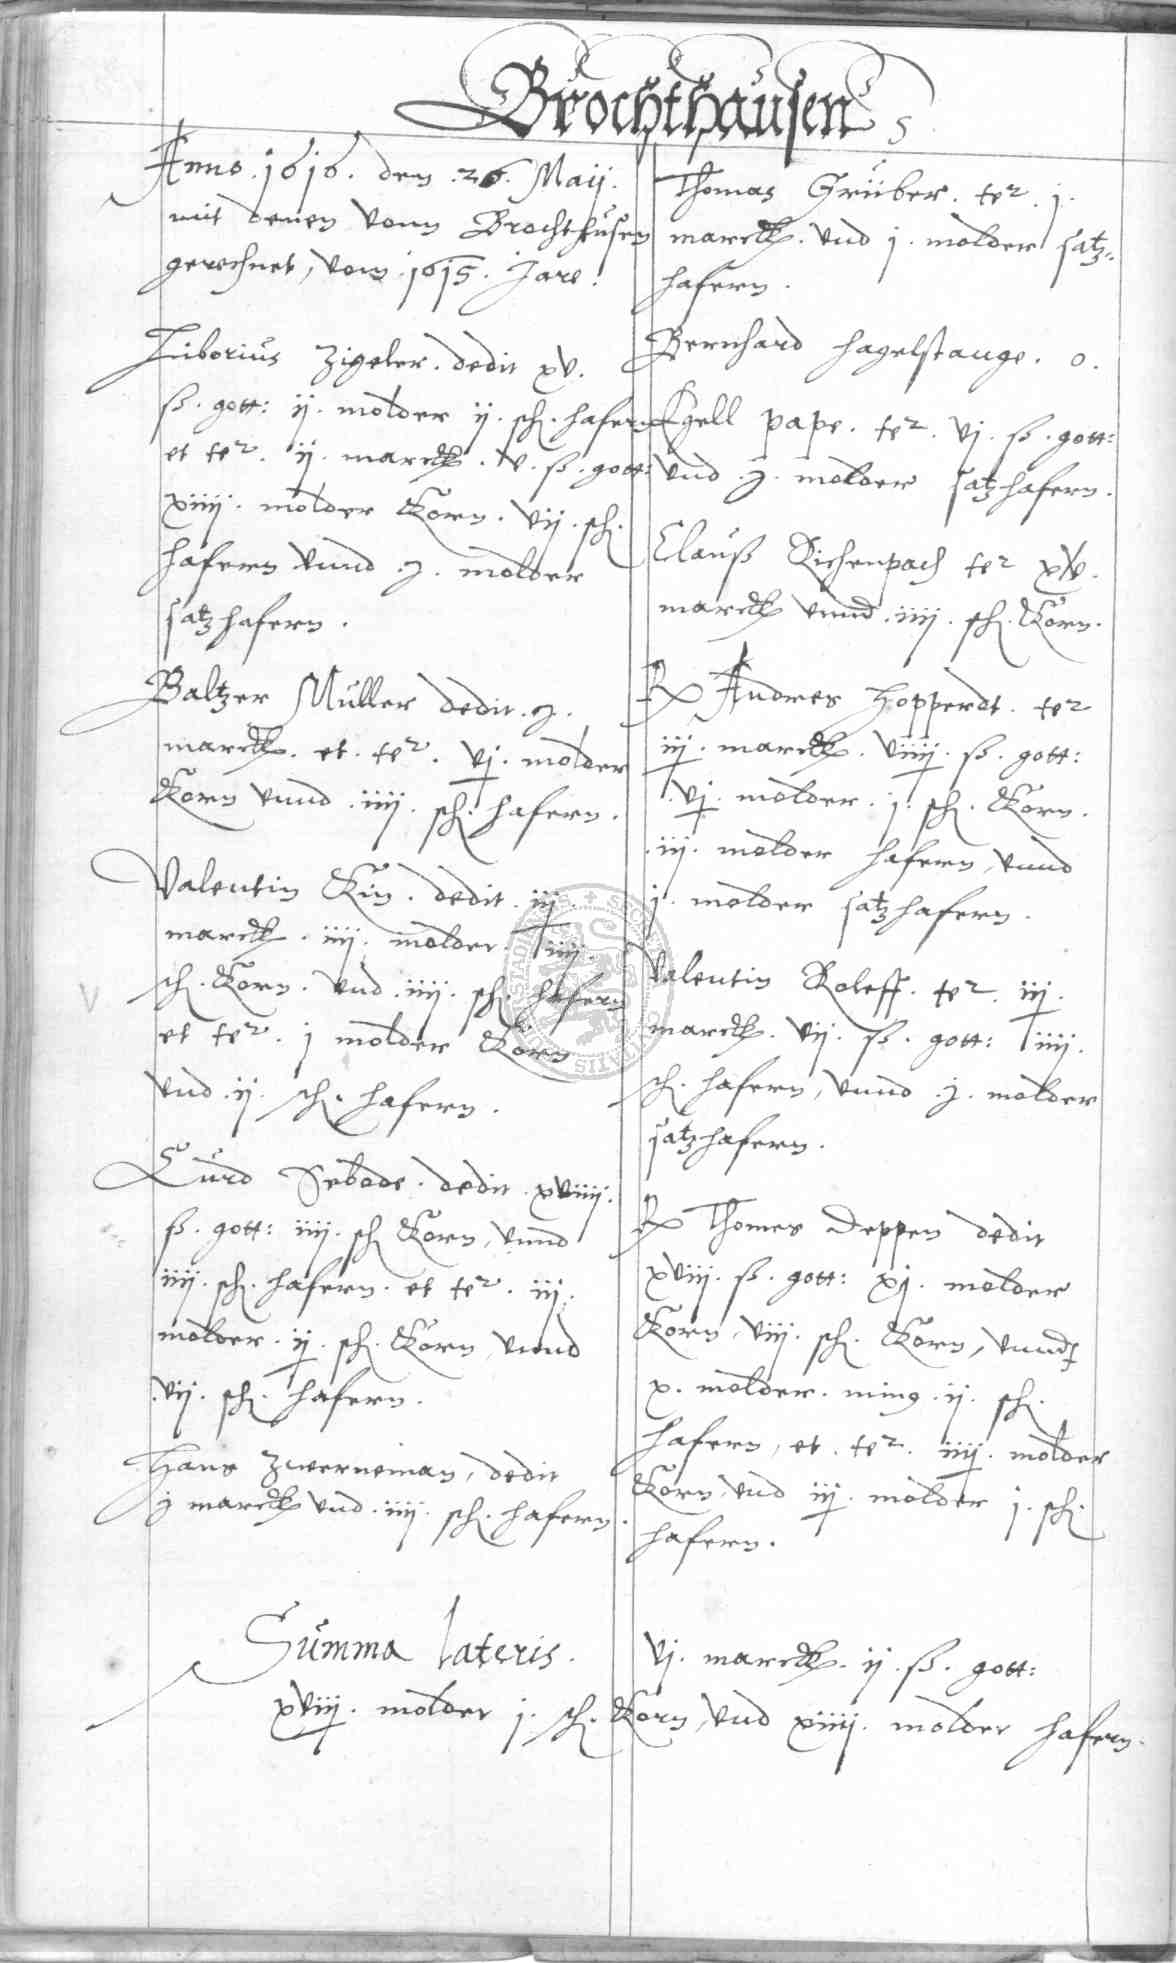 Brochthausen
Anno .1616. den .26. Maij.
mit denen vonn Brochthusen
gerechnet, vom .1615. Jare.
Liborius Zigeler. dedit xv.
ß. gott: ij. molder ij. sch. hafern
et ter. ij. marck. v. ß. gott:
xiiij. molder Korn. vij. sch.
hafern vnnd .j. molder
satzhafern.
Baltzer Müller dedit .j.
marck. et. ter. vj. molder
Korn vnnd .iiij. sch. hafern.
Valentin Kin. dedit .iij.
marck. iiij. molder. iiij.
sch. Korn. vnd .iiij. sch. hafern
et ter. j molder Korn
vnd .ij. sch. hafern.
Curd Sebode. dedit xviiij.
ß. gott: iiij. sch Korn, vnnd
iiij. sch. hafern. et ter. iij.
molder. ij. sch. Korn, vnnd
.vij. sch. hafern.
Hans Zwerneman, dedit
j marck vnd .iiij. sch. hafern.
Thomas Grüber. ter. j.
marck. vnd j. molder satz-
hafern.
Bernhard hagelstange. o.
pape. ter. vj. ß. gott:
vnd .j. molder satzhafern.
Clauß Richenpach ter xv.
marck vnnd .iiij. sch. Korn.
Rx Andres Hopperdt. ter
iij. marck. viiij. ß. gott:
.vj. molder. j. sch. Korn.
.iij. molder hafern, vnnd
j. molder satzhafern.
Valentin Roleff. ter. iij.
marck. vij. ß. gott: iiij.
sch. hafern, vnnd .j. molder
satzhafern.
Rx Thomes Deppen dedit
xviij. ß. gott: xj. molder
Korn, viij. sch. Korn, vnnd
x. molder. ming .ij. sch.
hafern, et. ter. iiij. molder
Korn, vnd iij. molder j. sch.
hafern.
Summa lateris. vj. marck. ij. ß. gott:
xviij. molder j. sch. Korn, vnd xiiij. molder hafern.